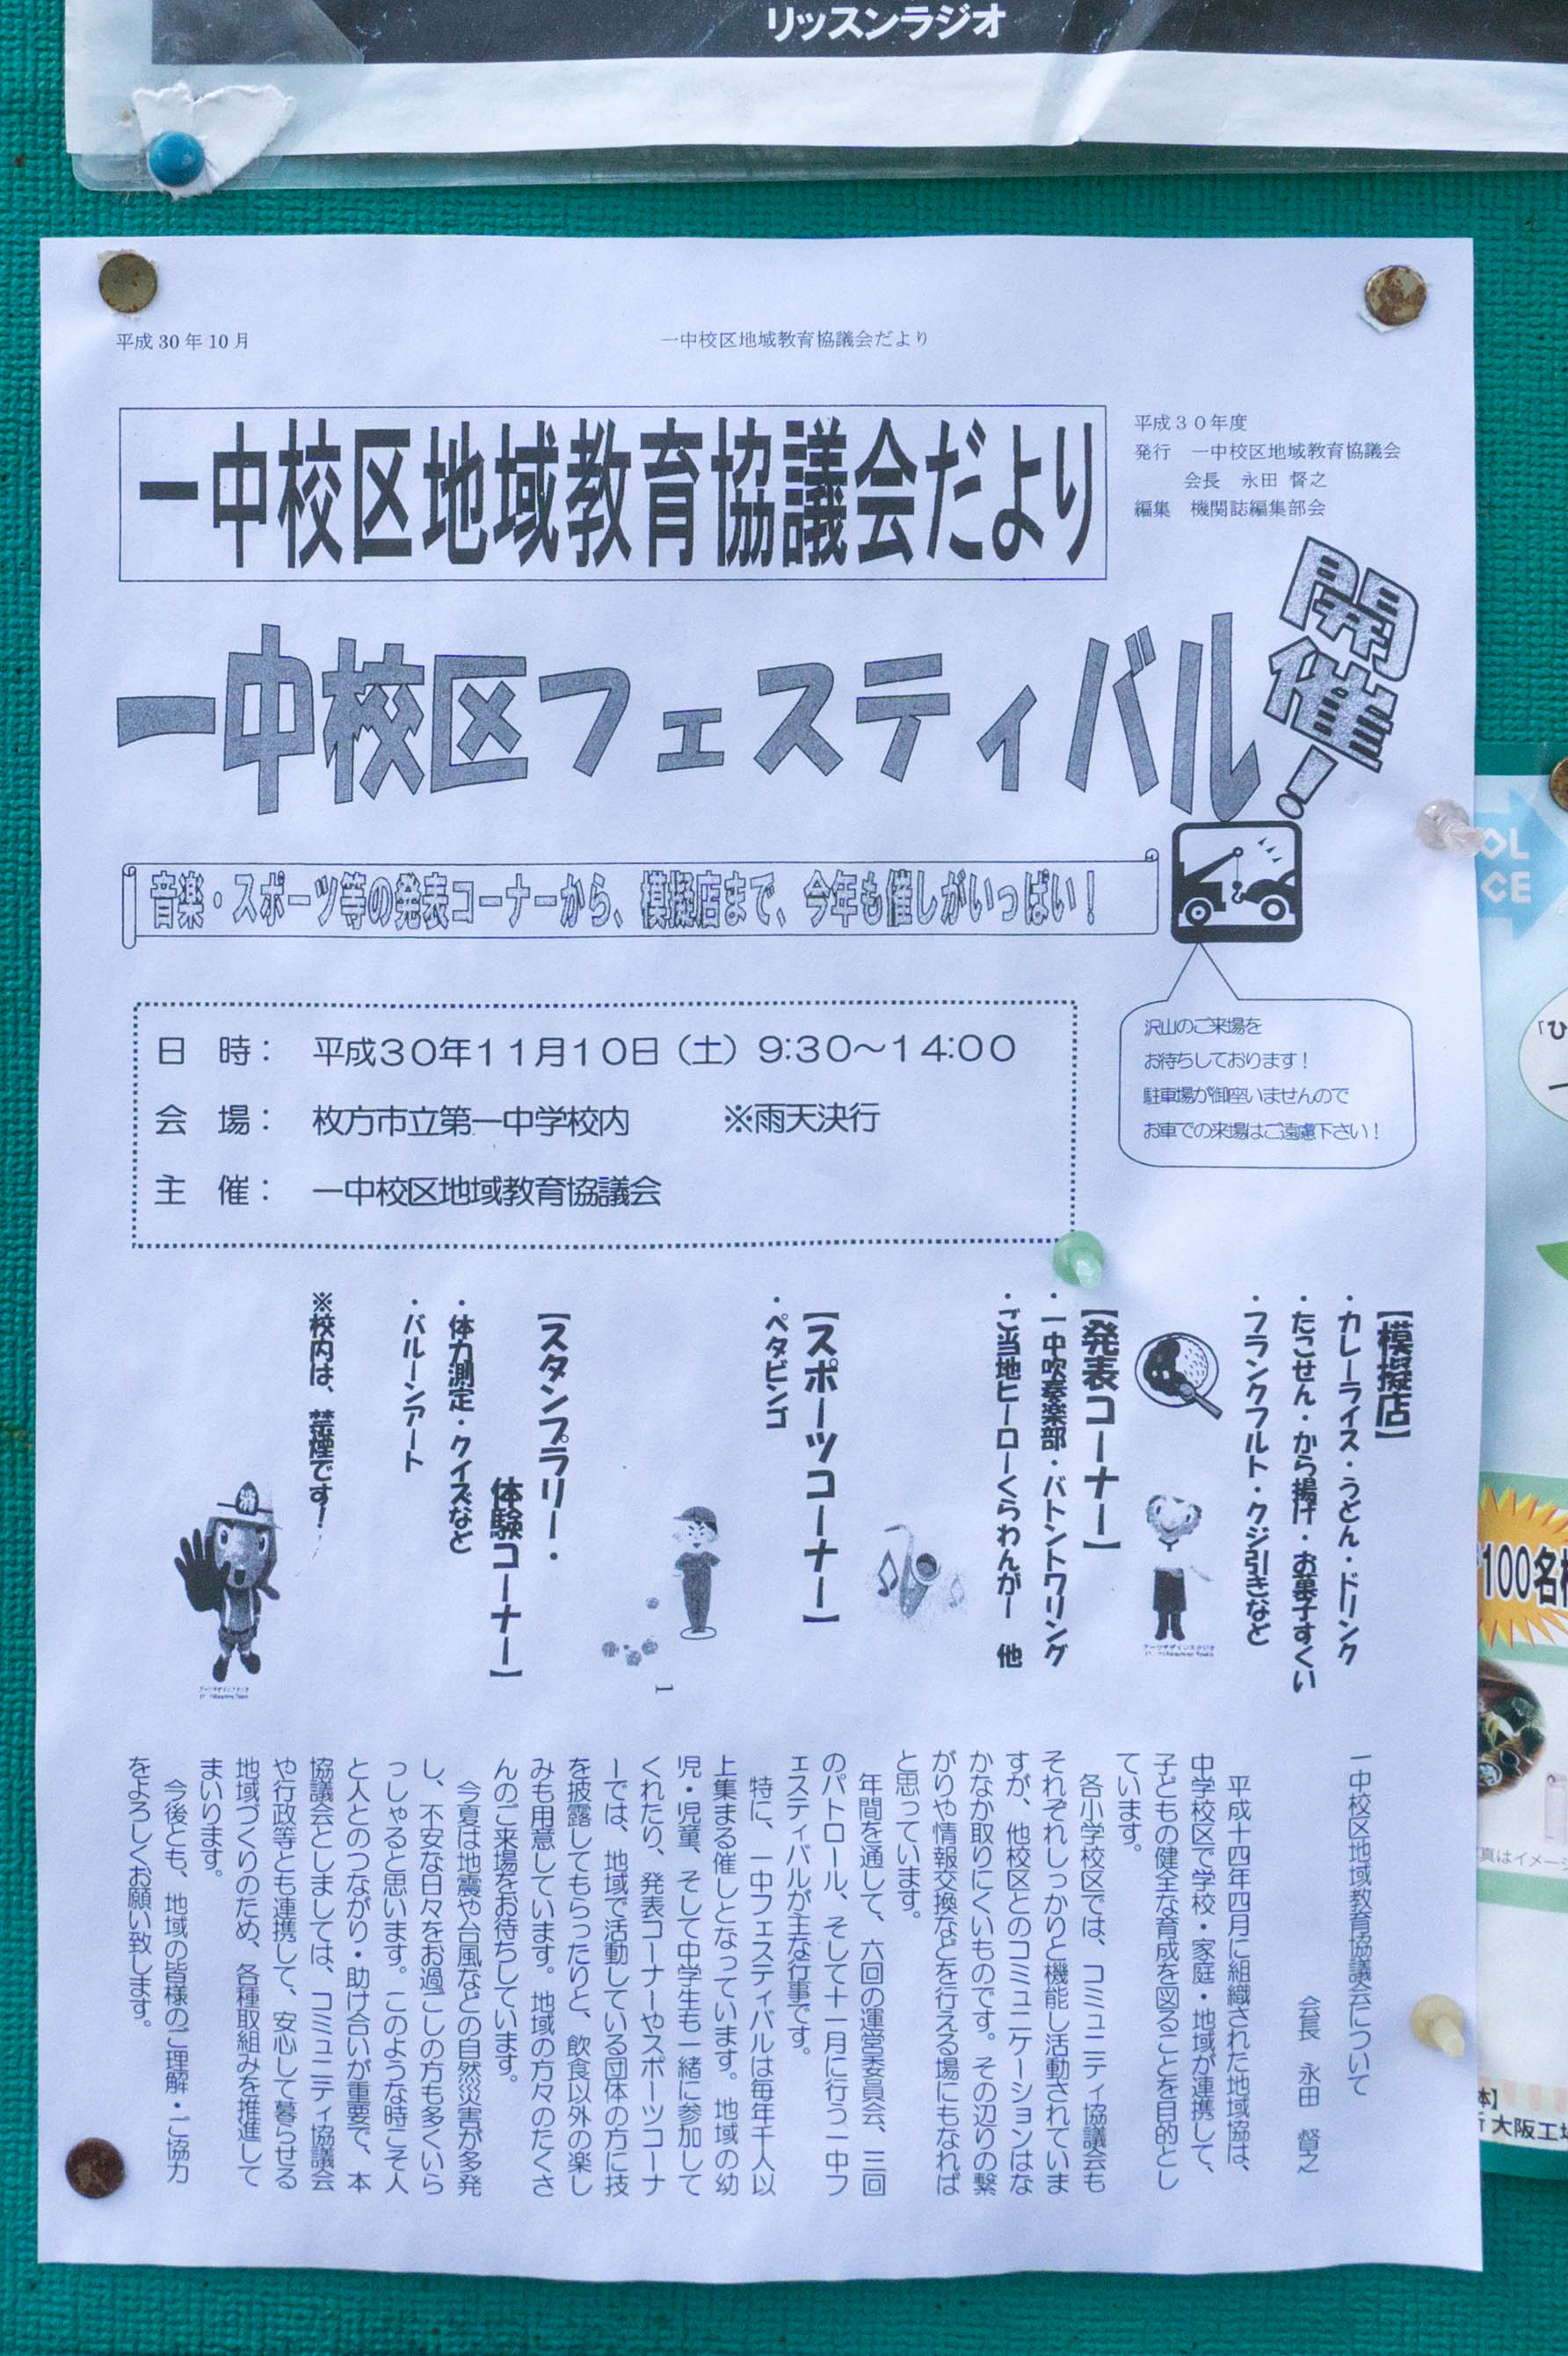 リッスンラジオ
平成30年10月
一中校区地域教育協議会だより
一中校区地域教育協議会だより
平成30年度
発行 一中校区地域教育協議会
会長 永田 督之
編集 機関誌編集部会
一中校区フェスティバル
開催!
音楽・スポーツ等の発表コーナーから、模擬店まで、今年も催しがいっぱい!
日 時: 平成30年11月10日(土) 9:30~14:00
会 場: 枚方市立第一中学校内 ※雨天決行
主 催: 一中校区地域教育協議会
沢山のご来場を
お待ちしております!
駐車場が御座いませんので
お車での来場はご遠慮下さい!
【模擬店】
・カレーライス・うどん・ドリンク
・たこせん・から揚げ・お菓子すくい
・フランクフルト・クジ引きなど
【発表コーナー】
・一中吹奏楽部・バトントワリング
・ご当地ヒーローくらわんがー 他
【スポーツコーナー】
・ペタビンゴ
【スタンプラリー・
体験コーナー】
・体力測定・クイズなど
・バルーンアート
※校内は、禁煙です!
消
1
一中校区地域教育協議会について
会長 永田 督之
平成十四年四月に組織された地域協は、
中学校区で学校・家庭・地域が連携して、
子どもの健全な育成を図ることを目的とし
ています。
各小学校区では、コミュニティ協議会も
それぞれしっかりと機能し活動されていま
すが、他校区とのコミュニケーションはな
かなか取りにくいものです。その辺りの繋
がりや情報交換などを行える場にもなれば
と思っています。
年間を通して、六回の運営委員会、三回
のパトロール、そして十一月に行う一中フ
ェスティバルが主な行事です。
特に、一中フェスティバルは毎年千人以
上集まる催しとなっています。地域の幼
児・児童、そして中学生も一緒に参加して
くれたり、発表コーナーやスポーツコーナ
ーでは、地域で活動している団体の方に技
を披露してもらったりと、飲食以外の楽し
みも用意しています。地域の方々のたくさ
んのご来場をお待ちしています。
今夏は地震や台風などの自然災害が多発
し、不安な日々をお過ごしの方も多くいら
っしゃると思います。このような時こそ人
と人とのつながり・助け合いが重要で、本
協議会としましては、コミュニティ協議会
や行政等とも連携して、安心して暮らせる
地域づくりのため、各種取組みを推進して
まいります。
今後とも、地域の皆様のご理解・ご協力
をよろしくお願い致します。
OL
CE
「ひ
100名
真はイメージ
体】
大阪工場